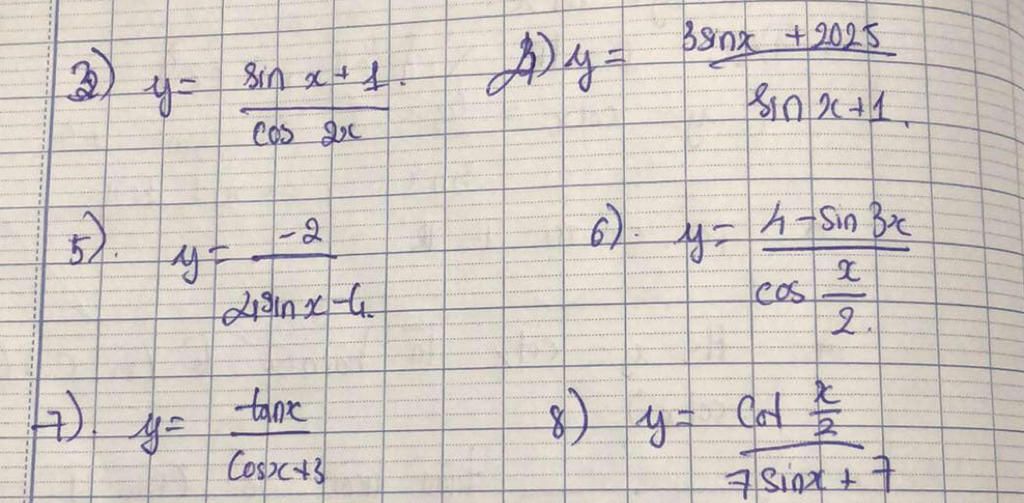 3) y = (sin x + 1)/(cos 2x). 4) y = (3sinx + 2025)/(sin x + 1).
5). y = (-2)/(4sinx - 4). 6). y = (4 - sin 3x)/(cos x/2).
7). y = (tanx)/(cosx + 3) 8) y = (cot x/2)/(7sinx + 7)